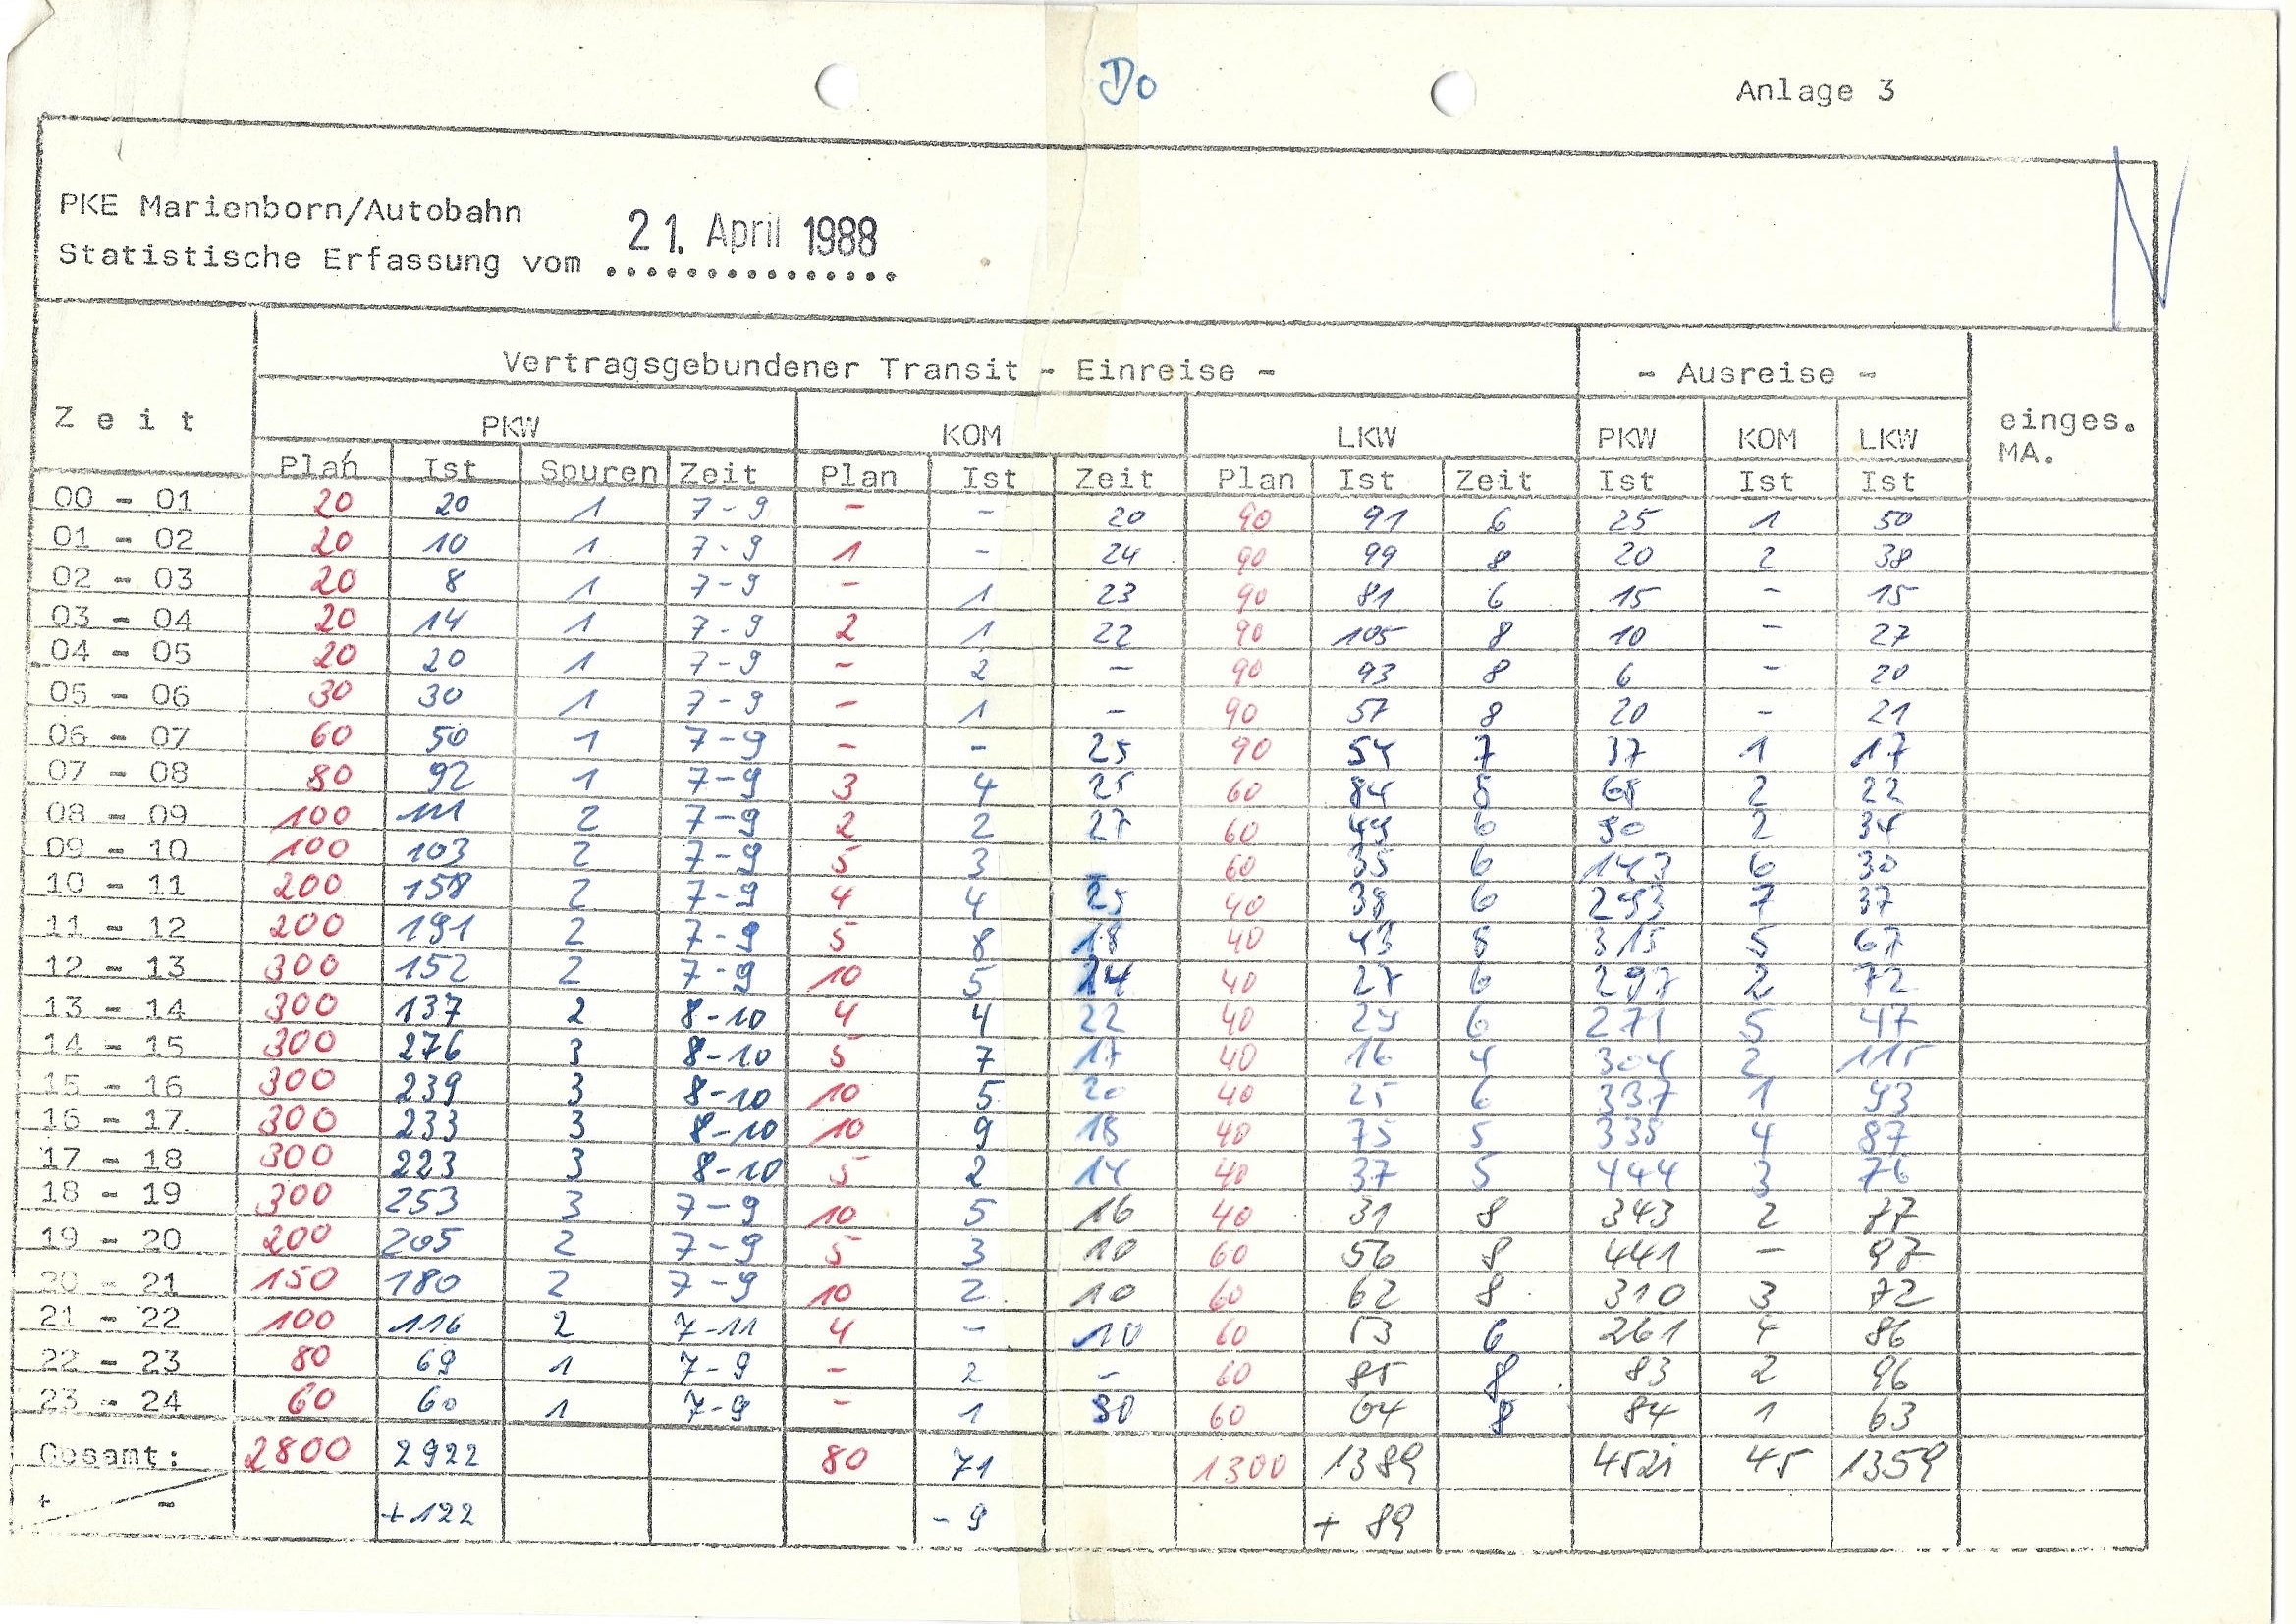 Do
Anlage 3
PKE Marienborn/Autobahn
Statistische Erfassung vom 21. April 1988
N
Vertragsgebundener Transit - Einreise - - Ausreise -
Zeit PKW KOM LKW PKW KOM LKW einges. MA.
Plan Ist Spuren Zeit Plan Ist Zeit Plan Ist Zeit Ist Ist Ist
00 - 01 20 20 1 7-9 - - 20 90 91 6 25 1 50
01 - 02 20 10 1 7-9 1 - 24 90 99 8 20 2 38
02 - 03 20 8 1 7-9 - 1 23 90 81 6 15 - 15
03 - 04 20 14 1 7-9 2 1 22 90 105 8 10 - 27
04 - 05 20 20 1 7-9 - 2 - 90 93 8 6 - 20
05 - 06 30 30 1 7-9 - 1 - 90 57 8 20 - 21
06 - 07 60 50 1 7-9 - - 25 90 54 7 37 1 17
07 - 08 80 92 1 7-9 3 4 25 60 84 5 68 2 22
08 - 09 100 111 2 7-9 2 2 27 60 49 6 90 2 34
09 - 10 100 103 2 7-9 5 3 - 60 35 6 143 6 30
10 - 11 200 158 2 7-9 4 4 25 40 38 6 293 7 37
11 - 12 200 191 2 7-9 5 8 18 40 43 315 5 67
12 - 13 300 152 2 7-9 10 5 24 40 27 6 297 2 72
13 - 14 300 137 2 8-10 4 4 22 40 29 6 271 5 47
14 - 15 300 276 3 8-10 5 7 17 40 16 4 304 2 115
15 - 16 300 239 3 8-10 10 5 20 40 25 6 337 1 93
16 - 17 300 233 3 8-10 10 9 18 40 75 5 335 4 87
17 - 18 300 223 3 8-10 5 2 14 40 37 5 444 3 76
18 - 19 300 253 3 7-9 10 5 16 40 31 8 343 2 77
19 - 20 200 205 2 7-9 5 3 10 60 56 8 441 - 97
20 - 21 150 180 2 7-9 10 2 10 60 62 8 310 3 72
21 - 22 100 116 2 7-11 4 - 10 60 53 6 261 4 86
22 - 23 80 69 1 7-9 - 2 - 60 85 8 83 2 96
23 - 24 60 60 1 7-9 - 1 30 60 64 8 84 1 63
Gesamt: 2800 2922 80 71 1300 1389 4521 45 1359
+ - +122 - 9 + 89